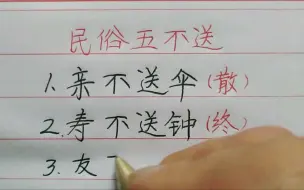 民俗五不送
1.亲不送伞(散)
2.寿不送钟(终)
3.友